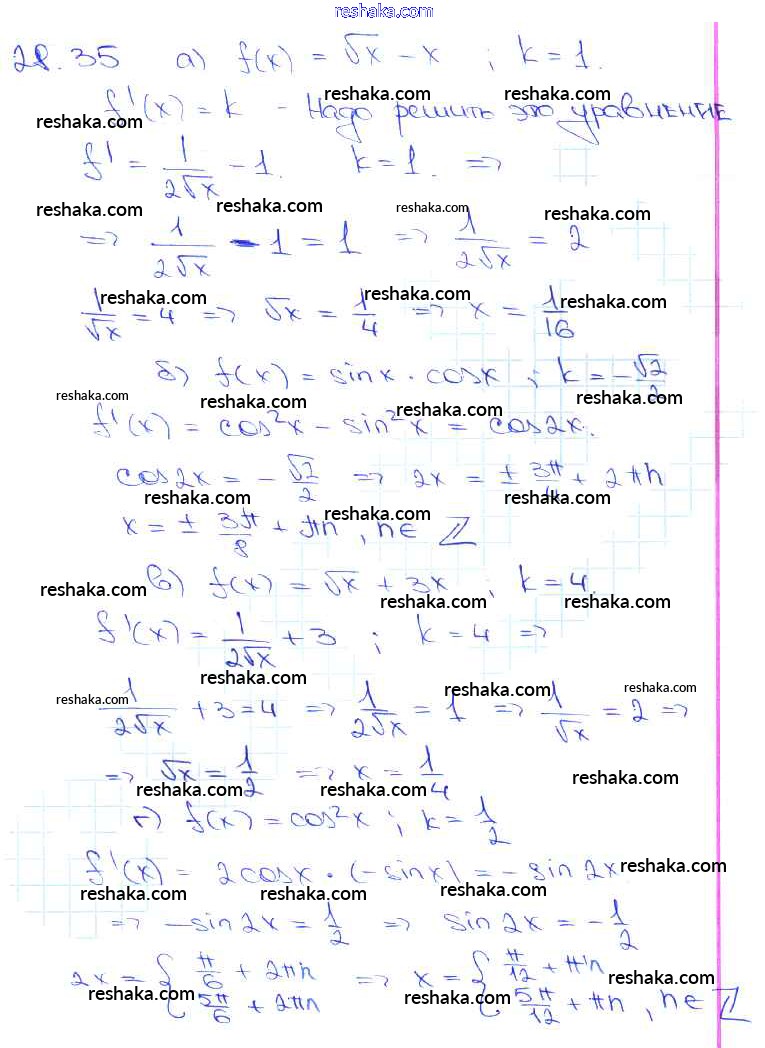 reshaka.com
28.35 а) f(x) = √x − x ; k = 1.
reshaka.com reshaka.com
f'(x) = k - Надо решить это уравнение
reshaka.com reshaka.com reshaka.com
f' = 1/(2√x) − 1. k = 1. =>
reshaka.com reshaka.com reshaka.com reshaka.com
=> 1/(2√x) − 1 = 1 => 1/(2√x) = 2
reshaka.com reshaka.com reshaka.com
1/√x = 4 => √x = 1/4 => x = 1/16
б) f(x) = sinx · cosx ; k = −√2/2
reshaka.com reshaka.com reshaka.com reshaka.com
f'(x) = cos²x − sin²x = cos2x.
cos2x = −√2/2 => 2x = ± 3π/4 + 2πn
reshaka.com reshaka.com reshaka.com
x = ± 3π/8 + πn , n∈ℤ
в) f(x) = √x + 3x ; k = 4.
reshaka.com reshaka.com reshaka.com reshaka.com
f'(x) = 1/(2√x) + 3 ; k = 4 =>
reshaka.com reshaka.com reshaka.com
reshaka.com reshaka.com reshaka.com reshaka.com
1/(2√x) + 3 = 4 => 1/(2√x) = 1 => 1/√x = 2 =>
=> √x = 1/2 => x = 1/4
reshaka.com reshaka.com reshaka.com
г) f(x) = cos²x ; k = 1/2
reshaka.com reshaka.com reshaka.com
f'(x) = 2cosx · (−sinx) = − sin2x.
reshaka.com reshaka.com reshaka.com
=> −sin2x = 1/2 => sin2x = −1/2
2x = { π/6 + 2πn => x = { π/12 + πn
5π/6 + 2πn 5π/12 + πn , n∈ℤ
reshaka.com reshaka.com reshaka.com reshaka.com